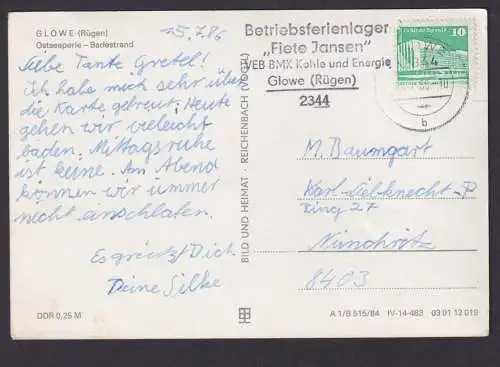 GLOWE (Rügen)
Ostseeperle – Badestrand
15.7.86
Liebe Tante Gretel!
Ich habe mich sehr über
die Karte gefreut. Heute
gehen wir vieleicht
baden. Mittagsruhe
ist keine. Am Abend
können wir immer
necht einschlafen.
Es grüßt Dich
Deine Silke
DDR 0,25 M
BILD UND HEIMAT · REICHENBACH (VOGTL)
Betriebsferienlager
„Fiete Jansen"
VEB BMK Kohle und Energie
Glowe (Rügen)
2344
10
b
M. Baumgart
Karl-Liebknecht-
Ring 27
Nünchritz
8403
A 1/B 515/84 IV-14-483 03 01 13 019